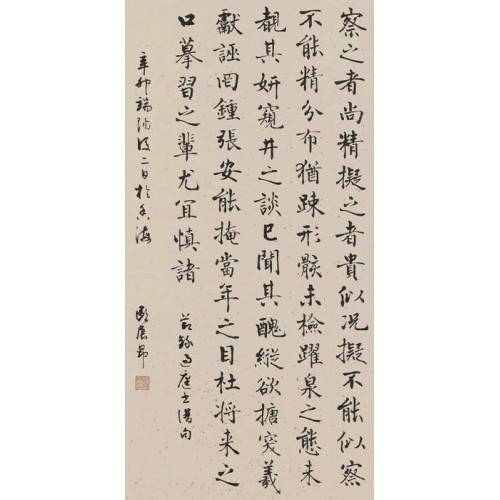 察之者尚精擬之者貴似況擬不能似察
不能精分布猶疎形骸未檢躍泉之態未
覩其妍窺井之談已聞其醜縱欲搪突羲
獻誣罔鍾張安能掩當年之目杜將來之
口摹習之輩尤宜慎諸 節孫過庭書譜句
辛卯端陽後二日於香海